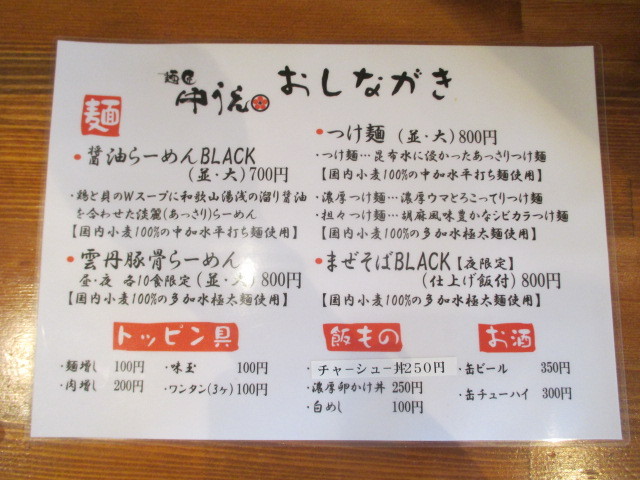 麺匠 中うえ おしながき
麺
・醤油らーめんBLACK
(並・大)700円
・鶏と貝のWスープに和歌山湯浅の溜り醤油
を合わせた淡麗(あっさり)らーめん
【国内小麦100%の中加水平打ち麺使用】
・雲丹豚骨らーめん
昼・夜 各10食限定(並・大)800円
【国内小麦100%の多加水極太麺使用】
・つけ麺(並・大)800円
・つけ麺…昆布水に浸かったあっさりつけ麺
【国内小麦100%の中加水平打ち麺使用】
・濃厚つけ麺…濃厚ウマとろこってりつけ麺
・担々つけ麺…胡麻風味豊かなシビカラつけ麺
【国内小麦100%の多加水極太麺使用】
・まぜそばBLACK【夜限定】
(仕上げ飯付)800円
【国内小麦100%の多加水極太麺使用】
トッピン具
・麺増し 100円 ・味玉 100円
・肉増し 200円 ・ワンタン(3ヶ)100円
飯もの
・チャーシュー丼250円
・濃厚卵かけ丼 250円
・白めし 100円
お酒
・缶ビール 350円
・缶チューハイ 300円